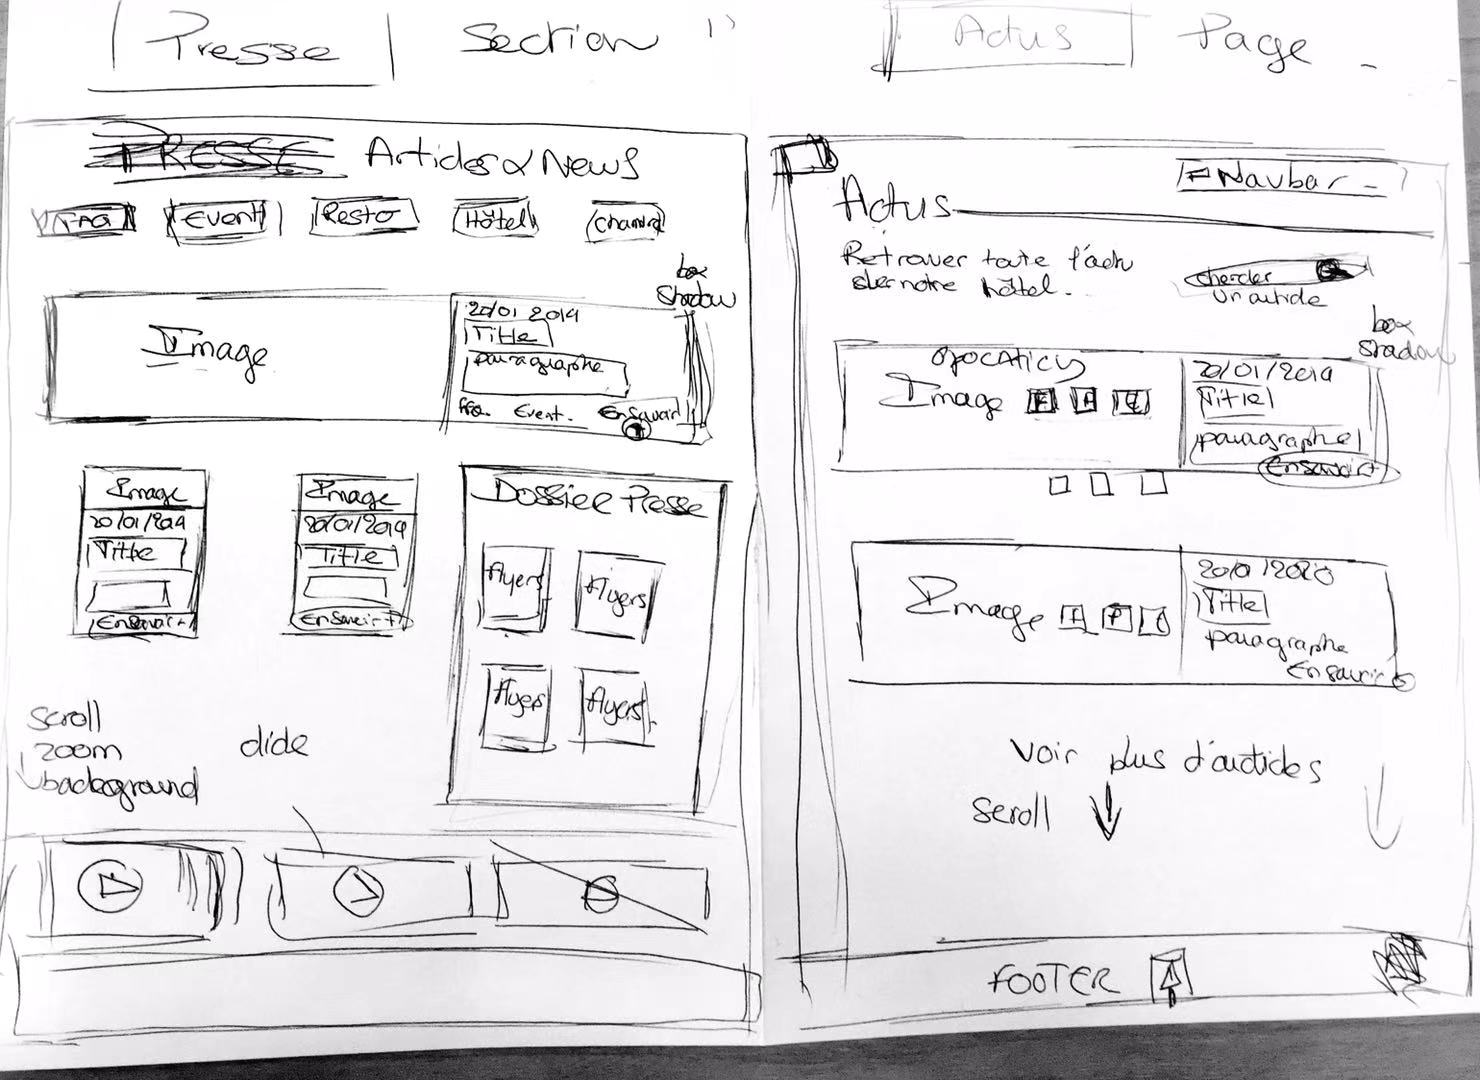 Presse Section 1)
PRESSE Articles & News
TAG Event Resto Hôtel
box
shadow
Image
20/01 2019
Title
paragraphe
Event. En Savoir
+
Image
20/01/2019
Title
En Savoir +
Image
20/01/2019
Title
En Savoir +
Dossier Presse
Flyers Flyers
Flyers Flyers
scroll
zoom
background
Actus Page
Navbar
Actus
Retrouver toute l'actu
notre hôtel.
chercher
un article
box
shadow
opocaticy
Image F
20/01/2019
Title
paragraphe
En Savoir +
Image
Title
paragraphe
En Savoir
voir plus d'articles
scroll
FOOTER